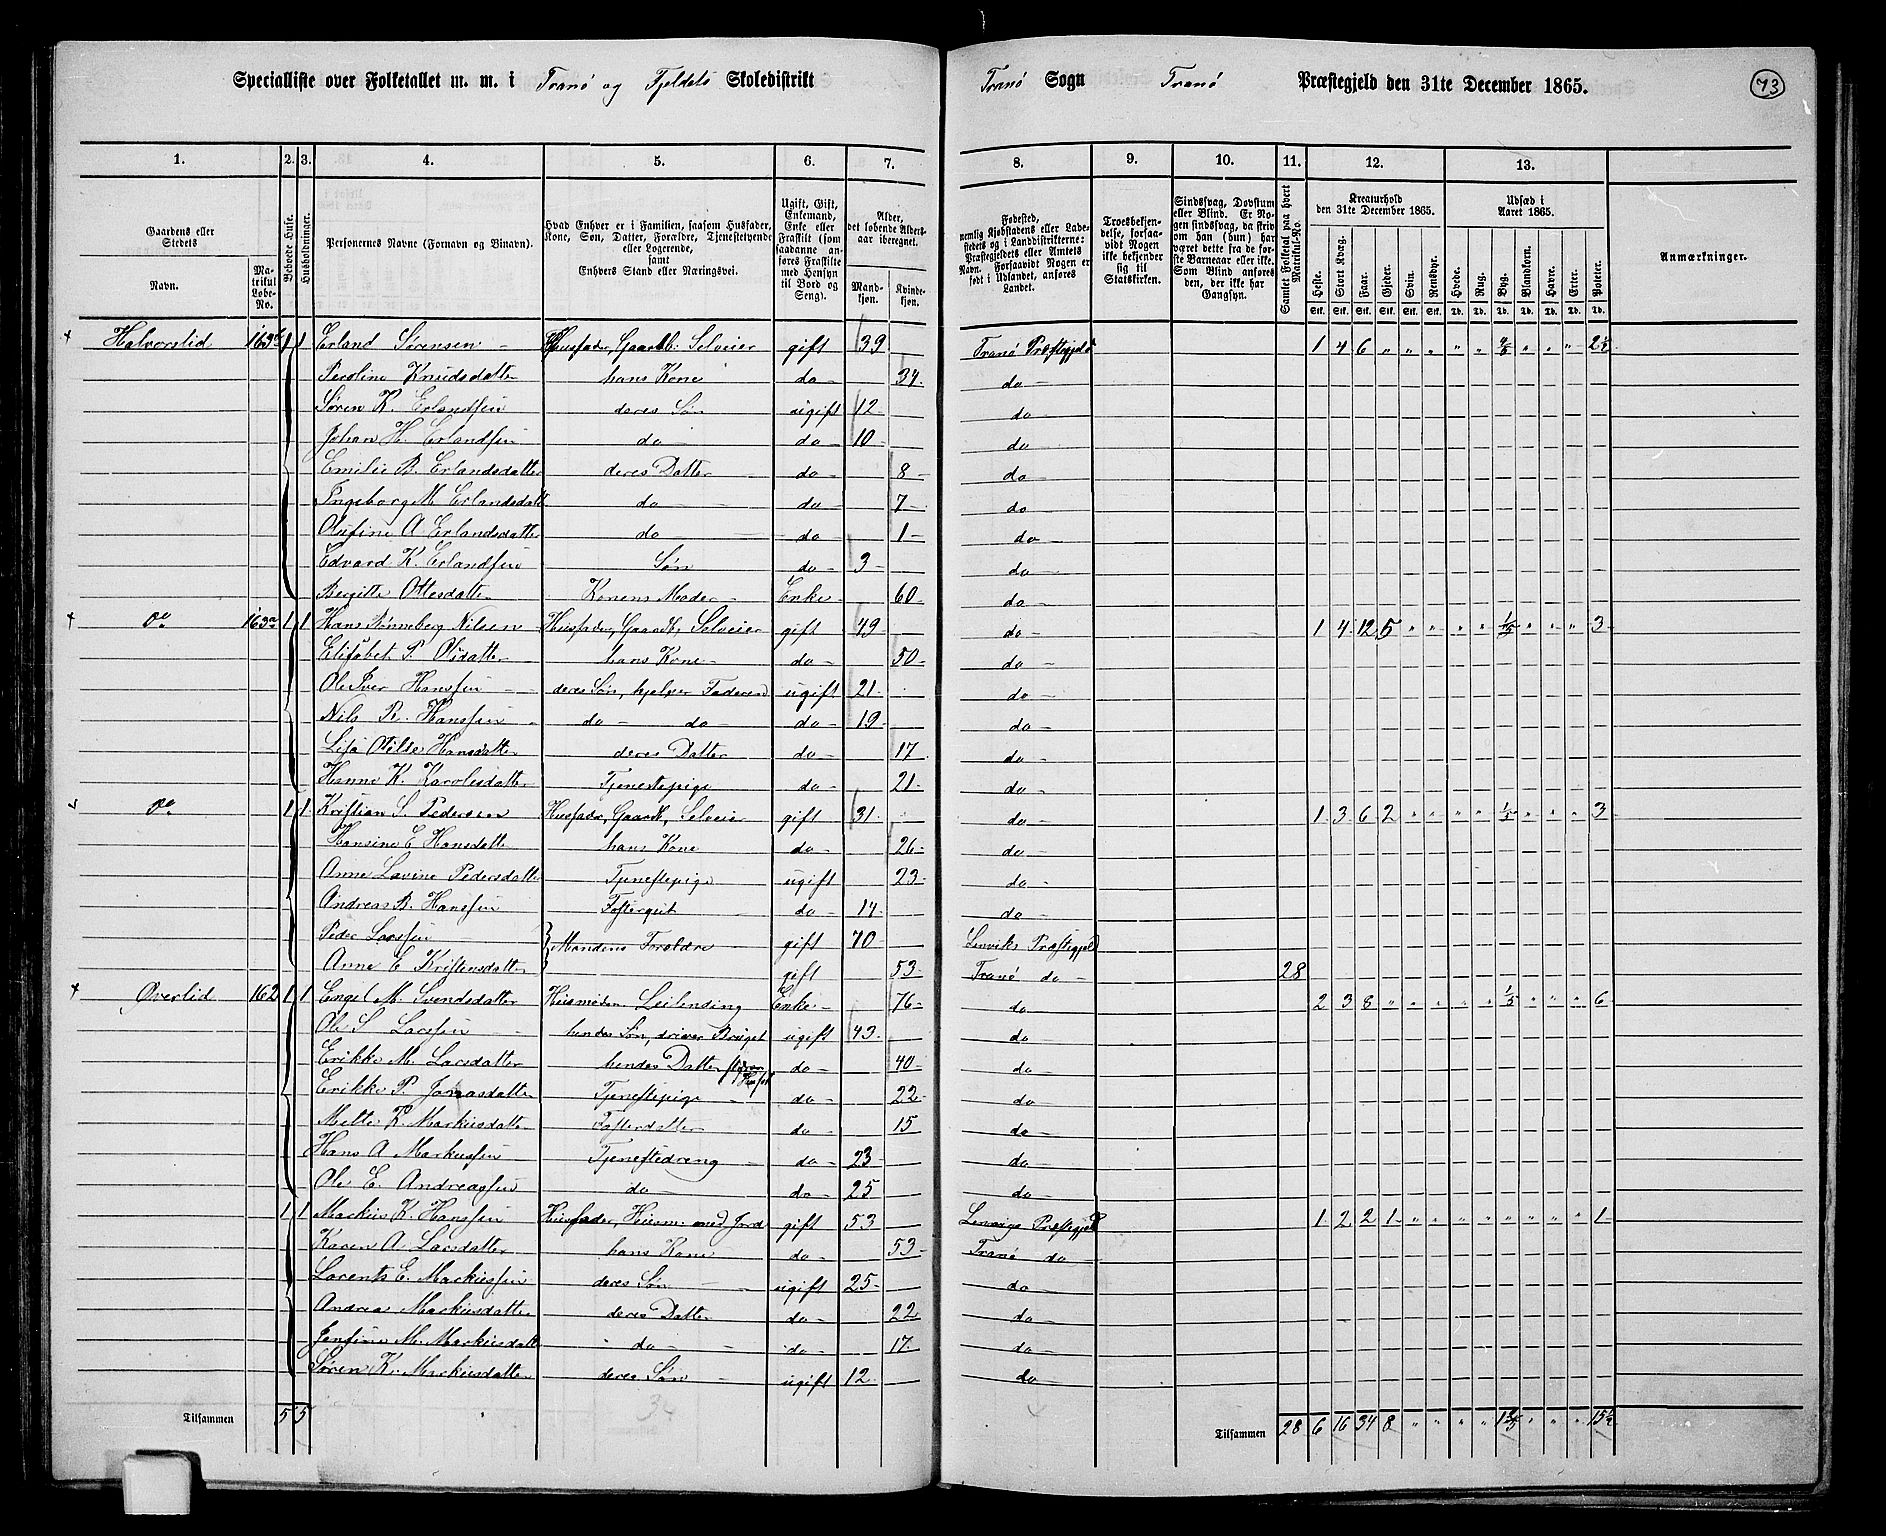 Specialliste over Folketallet m. m. i Tranö og Fjeldets Skoledistrikt Tranö Sogn Tranö Præstegjeld den 31te December 1865. 73
1. 2. 3. 4. 5. 6. 7. 8. 9. 10. 11. 12. 13.
Gaardens eller Stedets Navn. Matrikul Løbe-No.
Beboede Huse.
Husholdninger.
Personernes Navne (Fornavn og Binavn).
Hvad Enhver er i Familien, saasom Husfader, Kone, Søn, Datter, Forældre, Tjenestetyende eller Logerende, samt Enhvers Stand eller Næringsvei.
Ugift, Gift, Enkemand, Enke eller Fraskilt (som saadanne anføres Fraskilte med Hensyn til Bord og Seng).
Alder, det løbende Aldersaar iberegnet. Mandkjøn. Kvindekjøn.
Fødested, nemlig Kjøbstadens eller Ladestedets og i Landdistrikterne: Præstegjeldets eller Amtets Navn. Forsaavidt Nogen er født i Udlandet, anføres Landet.
Troesbekjendelse, forsaavidt Nogen ikke bekjender sig til Statskirken.
Sindssvag, Døvstum eller Blind. Er Nogen sindssvag, da skriv om han (hun) har været dette fra de første Barneaar eller ikke. Som Blind anføres den, der ikke har Gangsyn.
Samlet Folketal paa hvert Matrikul-No.
Kreaturhold den 31te December 1865.
Heste. Stort Kvæg. Faar. Gjeder. Svin. Rensdyr.
Udsæd i Aaret 1865.
Hvede. Rug. Byg. Blandkorn. Havre. Erter. Poteter.
Stk. Stk. Stk. Stk. Stk. Stk. Td. Td. Td. Td. Td. Td. Td.
Anmærkninger.
Halvorslid 163b 1 1 Erland Sørensen Husfader, Gaardb. Selveier gift 39 Tranö Præstegjeld 1 4 6 " " " " " 2/5 " " " 2½
Peroline Knudsdatter hans Kone do 34 do
Søren K. Erlandsen deres Søn ugift 12 do
Johan H. Erlandsen do do 10 do
Emilie B. Erlandsdatter deres Datter do 8 do
Ingeborg M Erlandsdatt do do 7 do
Olufine A Erlandsdatter do do 1 do
Edvard K. Erlandsen Søn do 3 do
Bergitte Ottesdatter Konens Moder Enke 60 do
Do 163a 1 1 Hans Rønneberg Nilsen Husfader, Gaardb, Selveier gift 49 do 1 4 12 5 " " " " " " " 3
Elisabet P. Olsdatter hans Kone do 50 do
Ole Iver Hanssen deres Søn, hjelper Faderen ugift 21 do
Nils R. Hanssen do do do 19 do
Lisa Otilde Hansdatter deres Datter do 17 do
Hanne K. Karolesdatter Tjenestepige do 21 do
Do 1 1 Kristian S Pedersen Husfader, Gaardb, Selveier gift 31 do 1 3 6 2 " " " " " " " 3
Hansine E Hansdatter hans Kone do 26 do
Anne Lavine Pedersdatter Tjenestepige ugift 23 do
Andreas B. Hanssen Fostergut do 14 do
Peder Larssen Mandens Forældre gift 70 Lenviks Præstegjeld
Anne E Kristensdatter gift 53 Tranö do 28
Øverlid 162 1 1 Engel M. Svendsdatter Husmoder Leilending Enke 76 do 2 3 8 " " " " " 1/5 " " " 6
Ole S Larssen hendes Søn, driver Bruget ugift 43 do
Erikke M. Larsdatter hendes Datter styrer Huset do 40 do
Erikke P. Jonasdatter Tjenestepige do 22 do
Mette K. Markusdatter Fosterdatter do 15 do
Hans A Markussen Tjenestedreng do 23 do
Ole E. Andreassen do do 25 do
1 1 Markus K. Hanssen Husfader, Husm. med Jord gift 53 Lenvigs Præstegjeld 1 2 2 1 " " " " " " " " 1
Karen A. Larsdatter hans Kone do 53 Tranö do
Lorents E. Markussen deres Søn ugift 25 do
Andrea Markusdatter deres Datter do 22 do
Jensine M. Markusdatt do do 17 do
Søren K. Markusdatter deres Søn ugift 12 do
Tilsammen 5 5 34 Tilsammen 28 6 16 34 8 " " " " " " " 15½